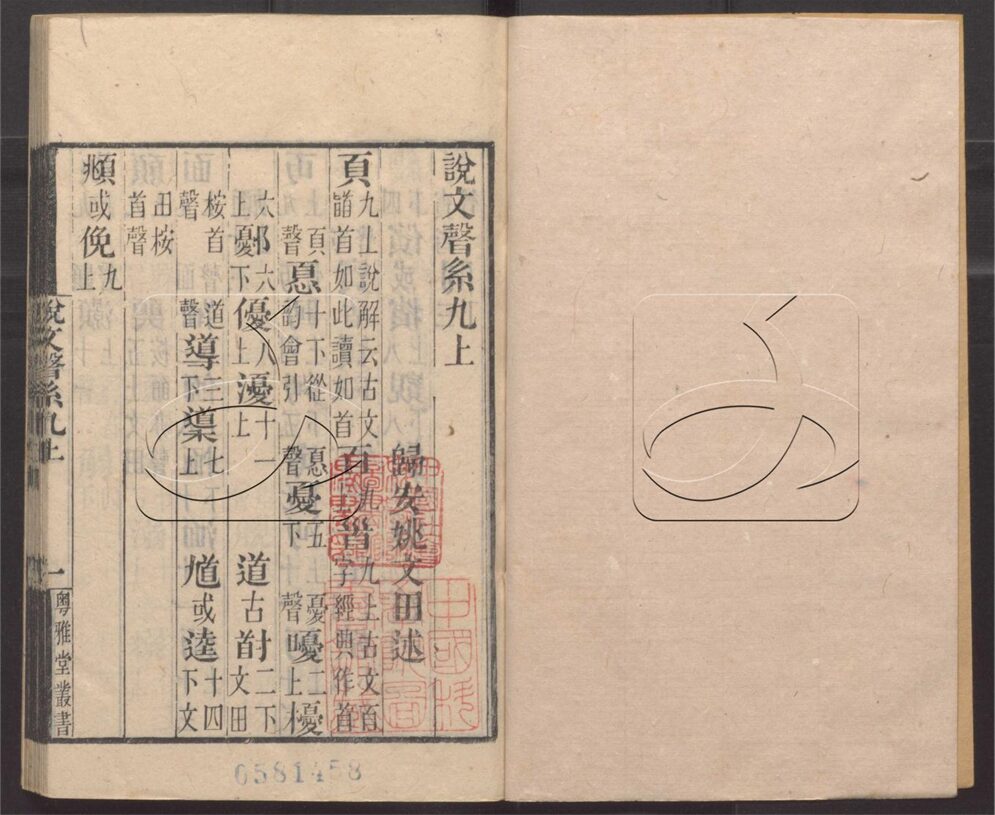 說文聲系九上
歸安姚文田述
頁九上說解云古文䭫首如此讀如首𦣻九上𩠐九上古文百字經典作首
頁聲㥑十下從韵會引㥑聲憂五下憂聲嚘二上櫌
六上鄾六下優八上瀀十一上道古𡬹二下文田
桉首聲道聲導三下䆃七上馗或逵十四下文
田桉首聲
頫或俛九上
說文聲系九上
一
粵雅堂叢書
0581458